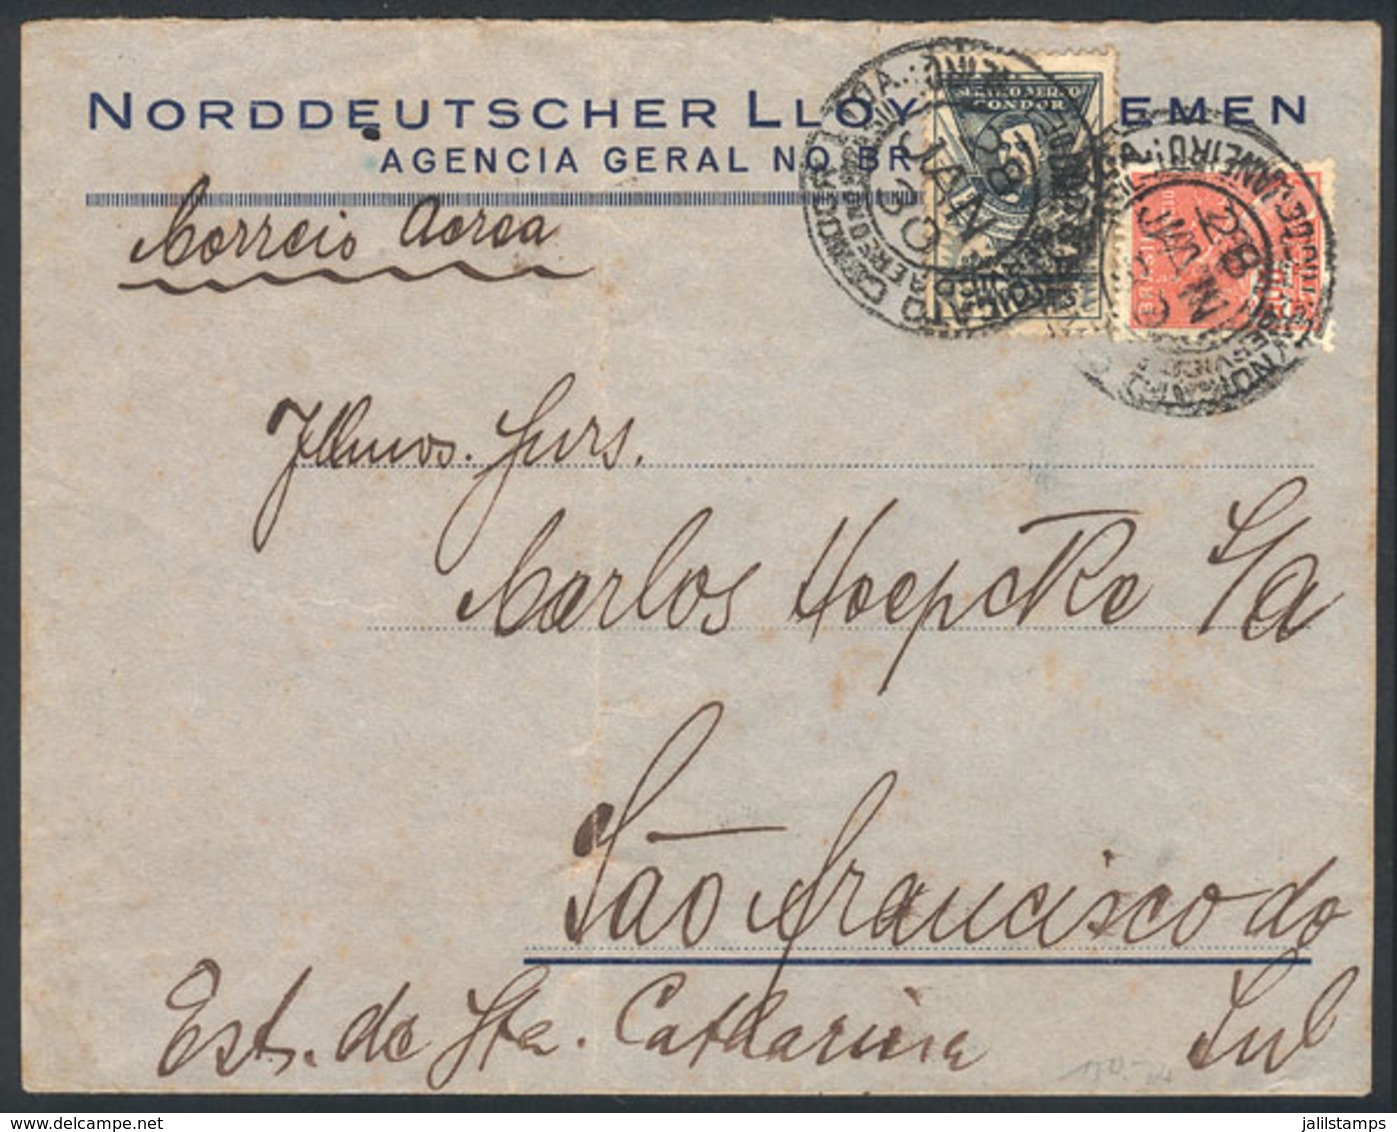 NORDDEUTSCHER LLOY EMEN
AGENCIA GERAL NO BR
Correio Aereo
SERVIÇO AEREO
CONDOR
28
JAN
30
28
JAN
JANEIRO
BRASIL
Illmos. Snrs.
Carlos Hoepcke S/A
São Francisco do
Sul
Est. de Sta. Catharina
jalilstamps